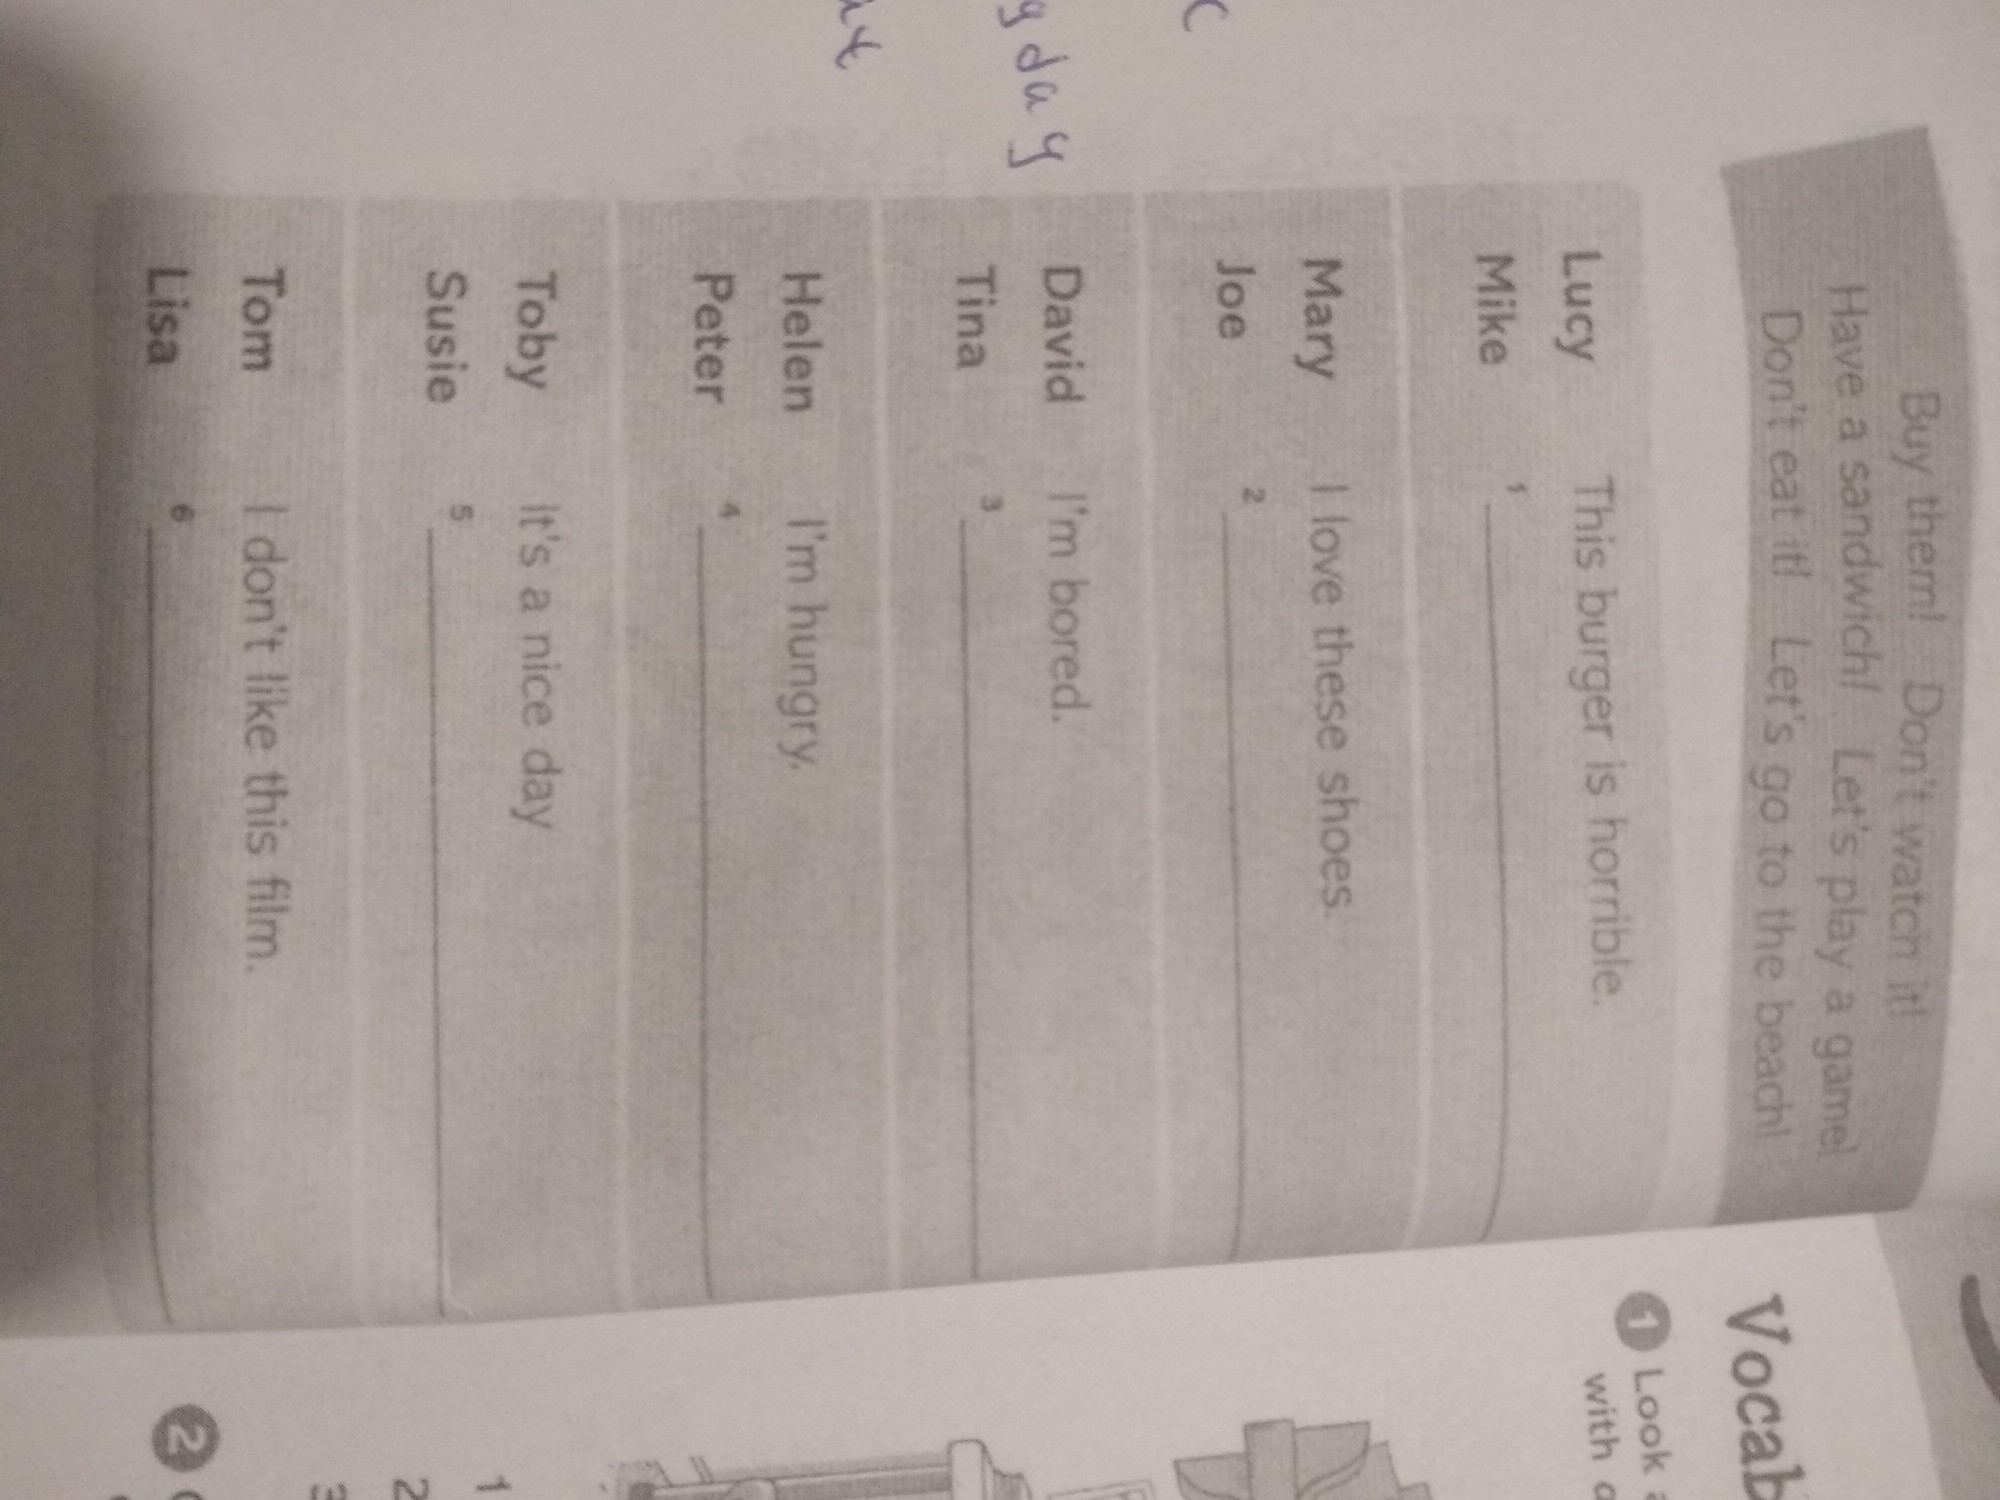 Buy them! Don't watch it!
Have a sandwich! Let's play a game!
Don't eat it! Let's go to the beach!
Lucy This burger is horrible.
Mike 1
Mary I love these shoes.
Joe 2
David I'm bored.
Tina 3
Helen I'm hungry.
Peter 4
Toby It's a nice day
Susie 5
Tom I don't like this film.
Lisa 6
g day
Vocab
1 Look
with
1
2
3
2